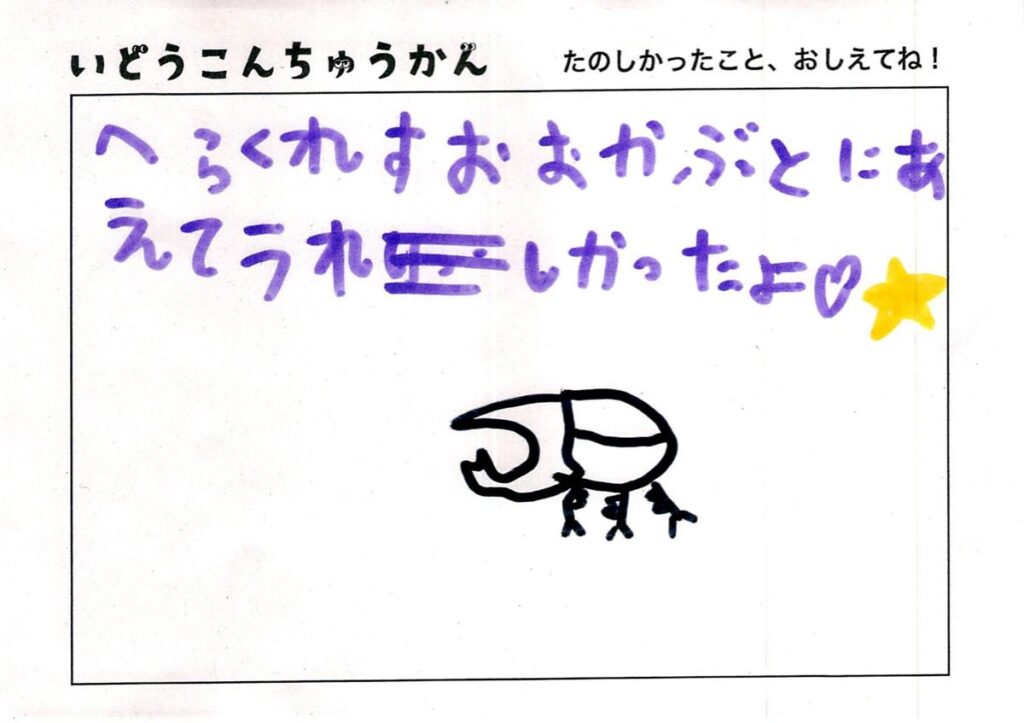 いどうこんちゅうかん たのしかったこと、おしえてね!
へらくれすおおかぶとにあ
えてうれしかったよ♡